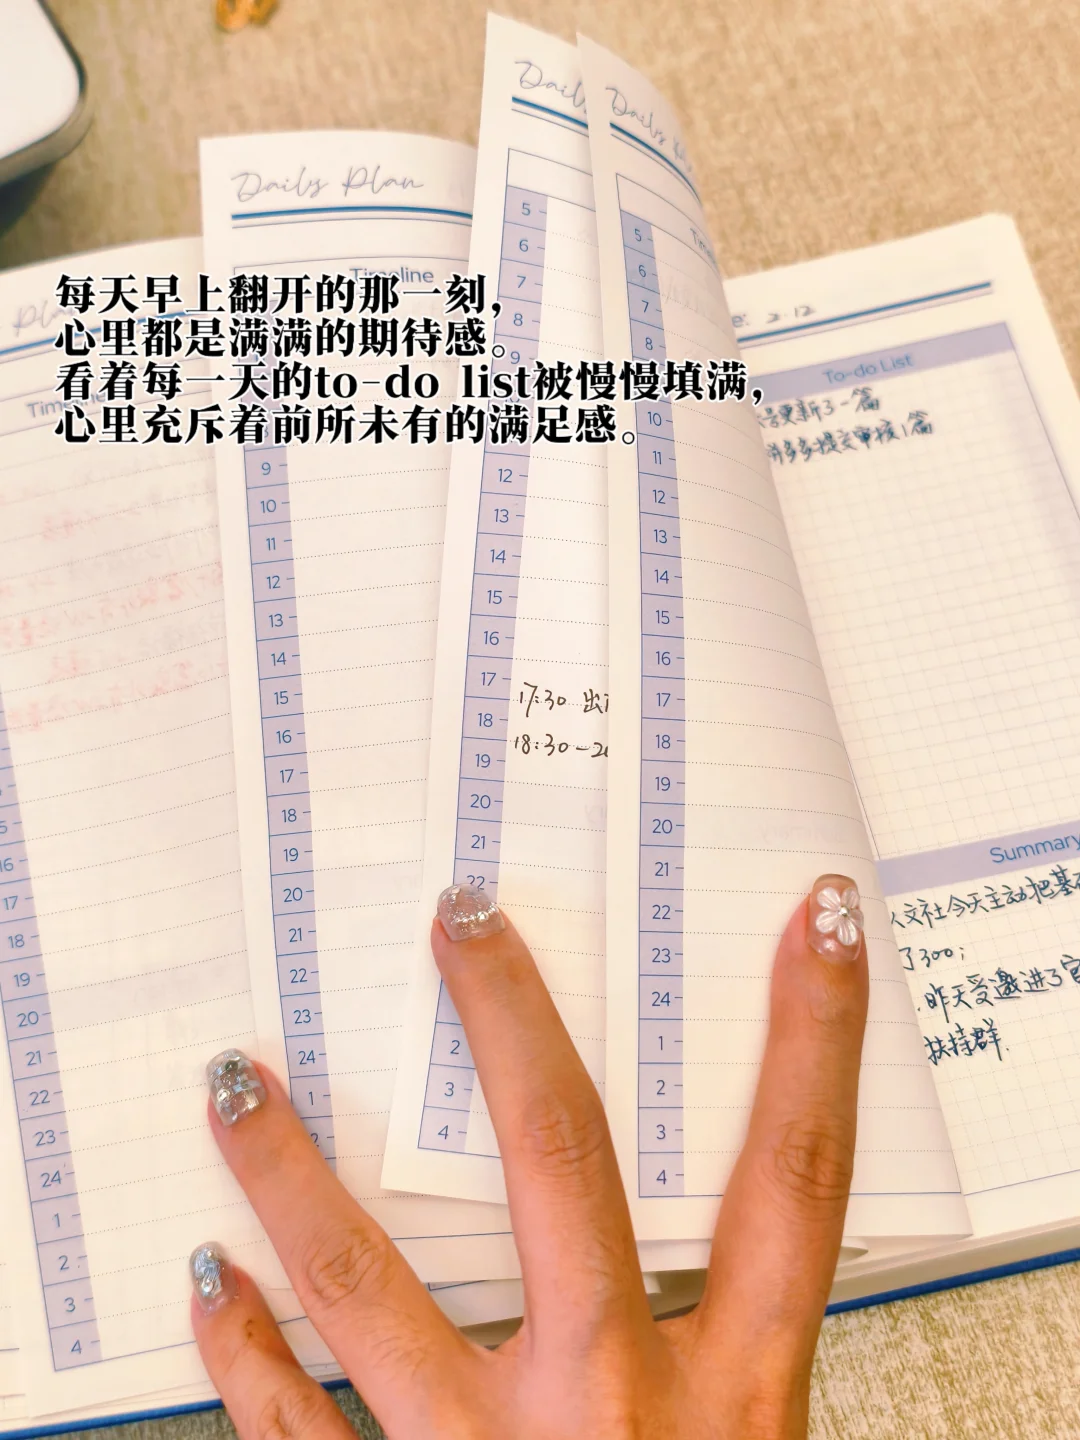 每天早上翻开的那一刻，
心里都是满满的期待感。
看着每一天的to-do list被慢慢填满，
心里充斥着前所未有的满足感。
Daily Plan
Timeline
9
10
11
12
13
14
15
16
17
18
19
20
21
22
23
24
1
2
Daily
5
6
7
8
9
12
13
14
15
16
17
18
19
20
21
22
2
3
4
17:30 出
18:30-20
Daily
5
6
7
8
10
11
12
13
14
15
16
17
18
19
20
21
22
23
24
1
2
3
4
2.12
To-do List
更新了一篇
拼多多提交审核1篇
Summary
人文社今天主动把基
了300；
昨天受邀进了官
扶持群.
16
17
18
19
20
21
22
23
24
1
2
3
4